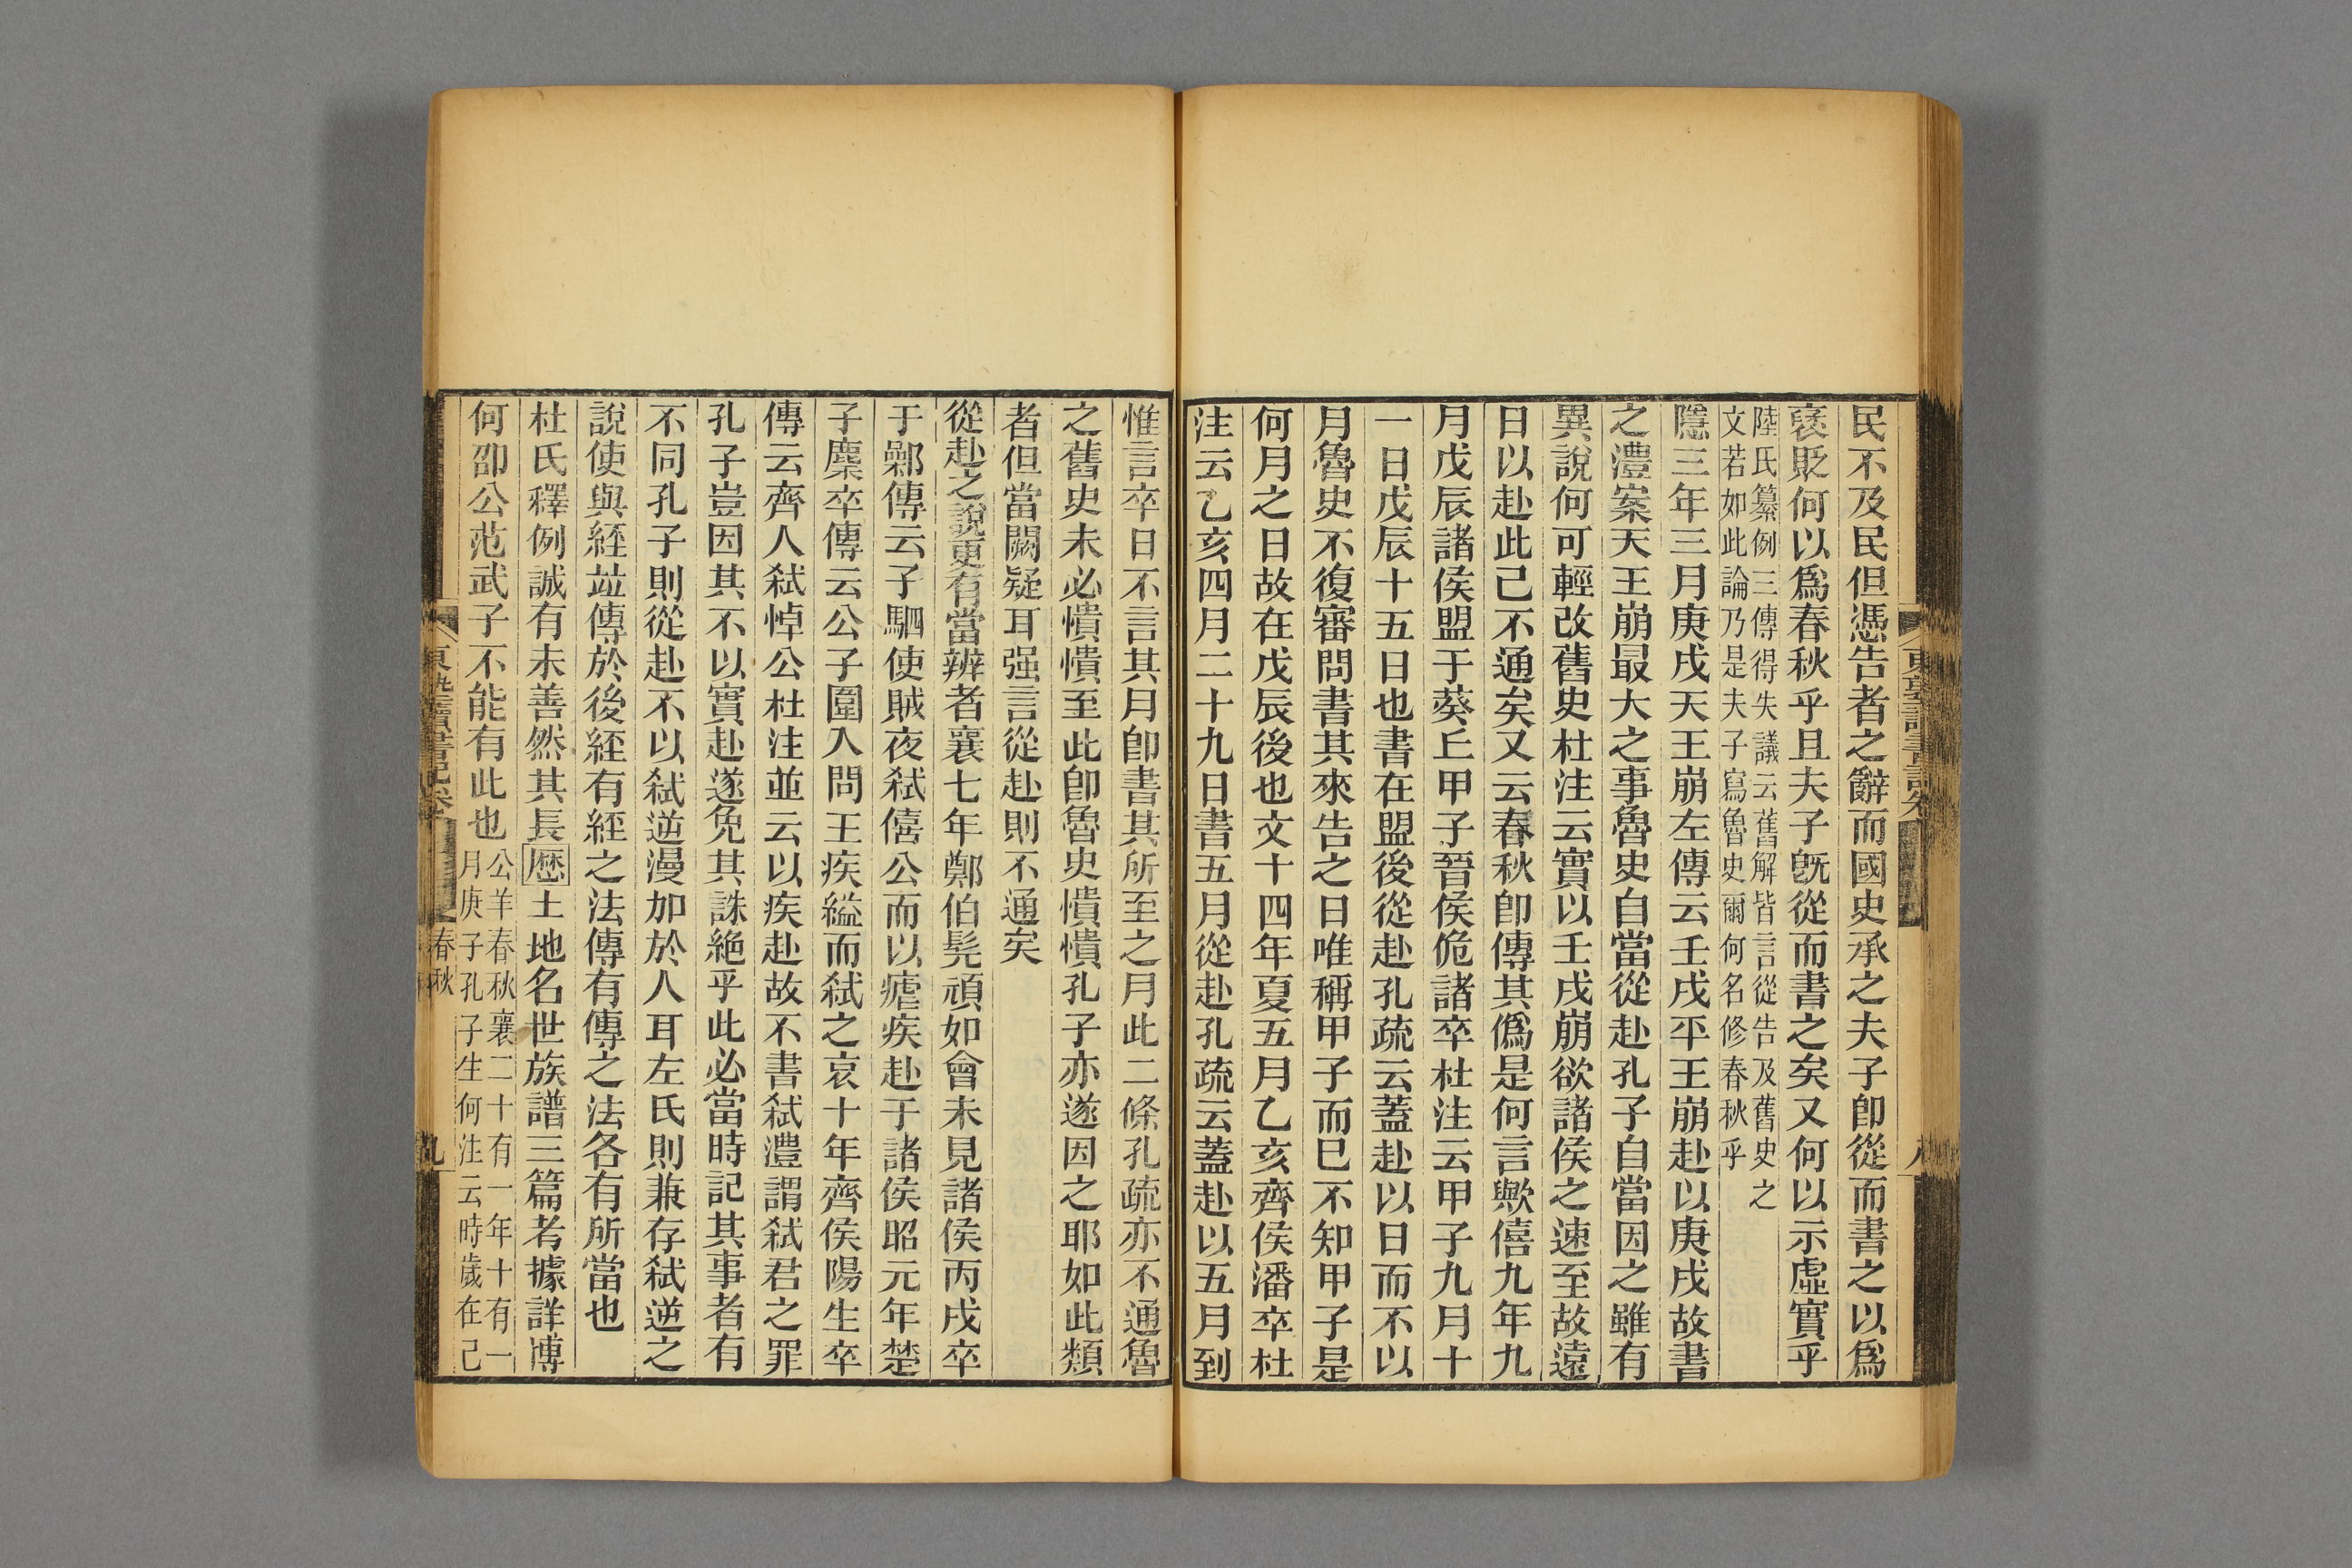 民不及民但憑告者之辭而國史承之夫子卽從而書之以爲
襃貶何以爲春秋乎且夫子旣從而書之矣又何以示虛實乎
陸氏纂例三傳得失議云舊解皆言從告及舊史之
文若如此論乃是夫子寫魯史爾何名修春秋乎
隱三年三月庚戌天王崩左傳云壬戌平王崩赴以庚戌故書
之澧案天王崩最大之事魯史自當從赴孔子自當因之雖有
異說何可輕改舊史杜注云實以壬戌崩欲諸侯之速至故遠
日以赴此已不通矣又云春秋卽傳其僞是何言歟僖九年九
月戊辰諸侯盟于葵丘甲子晉侯佹諸卒杜注云甲子九月十
一日戊辰十五日也書在盟後從赴孔疏云蓋赴以日而不以
月魯史不復審問書其來告之日唯稱甲子而已不知甲子是
何月之日故在戊辰後也文十四年夏五月乙亥齊侯潘卒杜
注云乙亥四月二十九日書五月從赴孔疏云蓋赴以五月到
惟言卒日不言其月卽書其所至之月此二條孔疏亦不通魯
之舊史未必憒憒至此卽魯史憒憒孔子亦遂因之耶如此類
者但當闕疑耳强言從赴則不通矣
從赴之說更有當辨者襄七年鄭伯髡頑如會未見諸侯丙戌卒
于鄵傳云子駟使賊夜弑僖公而以瘧疾赴于諸侯昭元年楚
子麇卒傳云公子圍入問王疾縊而弑之哀十年齊侯陽生卒
傳云齊人弑悼公杜注並云以疾赴故不書弑澧謂弑君之罪
孔子豈因其不以實赴遂免其誅絕乎此必當時記其事者有
不同孔子則從赴不以弑逆漫加於人耳左氏則兼存弑逆之
說使與經竝傳於後經有經之法傳有傳之法各有所當也
杜氏釋例誠有未善然其長厯土地名世族譜三篇考據詳博
何卲公范武子不能有此也公羊春秋襄二十有一年十有一
月庚子孔子生何注云時歲在己
東塾讀書記卷十
春秋
九